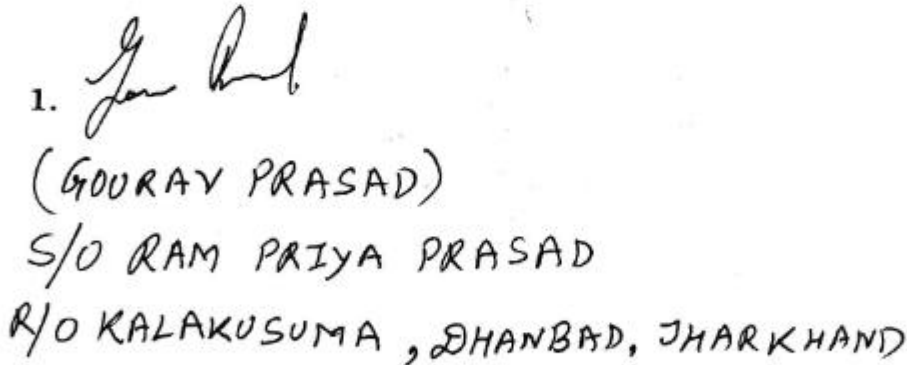 1.
(GOURAV PRASAD)
S/O RAM PRIYA PRASAD
R/O KALAKUSUMA, DHANBAD, JHARKHAND